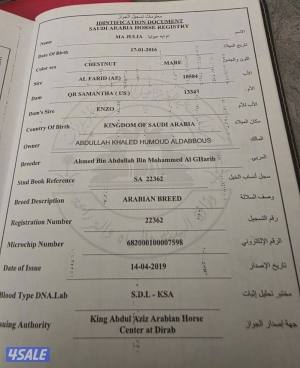 معلومات لتسجيل الجواز
IDENTIFICATION DOCUMENT
SAUDI ARABIA HORSE REGISTRY
Name MA JULIA الاسم
Date Of Birth 17-01-2016 تاريخ الميلاد
Color sex CHESTNUT MARE اللون والجنس
Sire AL FARID (AE) 10504 الأب
Dam QR SAMANTHA (US) 13343 الأم
Dam's Sire ENZO الأب للأم
Country Of Birth KINGDOM OF SAUDI ARABIA مكان الميلاد
Owner ABDULLAH KHALED HUMOUD ALDABBOUS المالك
Breeder Ahmed Bin Abdullah Bin Mohammed Al GHarib المربي
Stud Book Reference SA 22362 سجل أنساب الخيل
Breed Description ARABIAN BREED وصف السلالة
Registration Number 22362 رقم التسجيل
Microchip Number 682000100007598 الرقم الإلكتروني
Date of Issue 14-04-2019 تاريخ الإصدار
Blood Type DNA.Lab S.D.L - KSA مختبر تحليل إثبات
suing Authority King Abdul Aziz Arabian Horse جهة إصدار الجواز
Center at Dirab
4SALE